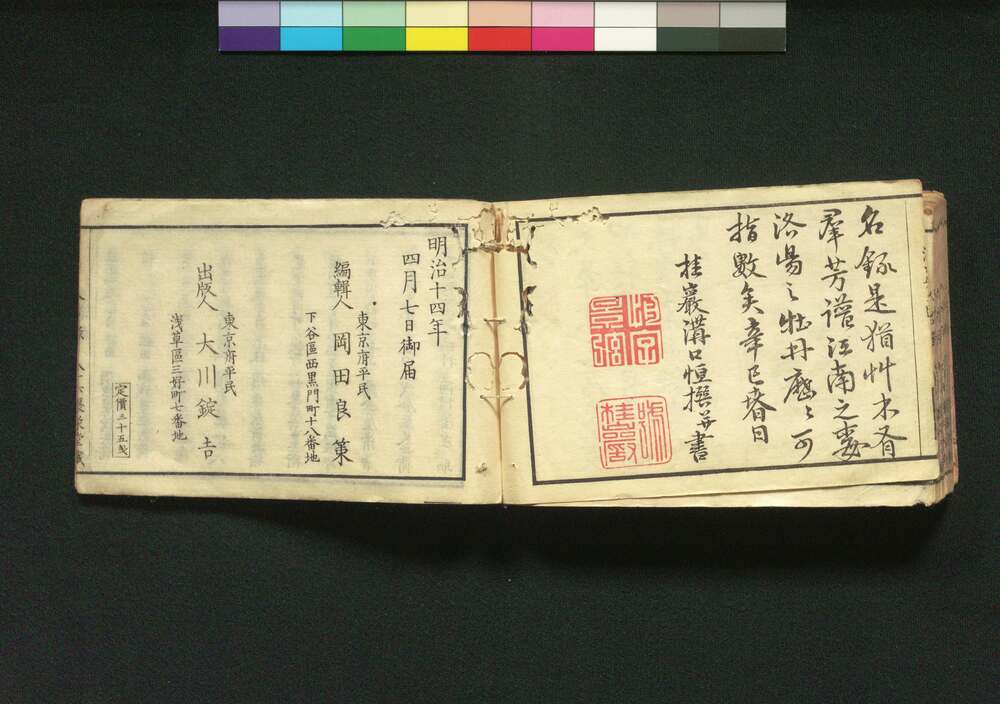 名錄是猶艸木有
羣芳譜江南之
洛陽之牡丹歷〻可
指數矣辛巳春日
桂巖溝口恒撰并書
明治十四年
四月七日御届
東京府平民
編輯人 岡田良策
下谷區西黒門町十八番地
東京府平民
出版人 大川錠吉
浅草區三好町七番地
定價三十五銭